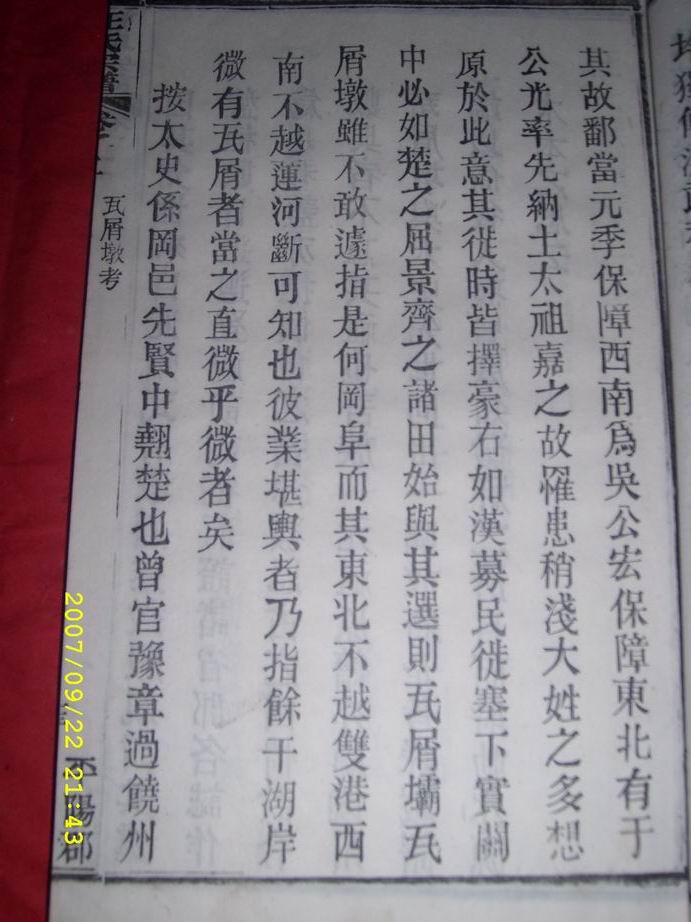 其故鄱當元季保障西南為吳公宏保障東北有于
公光率先納土太祖嘉之故罹患稍淺大姓之多想
原於此意其徙時皆擇豪右如漢募民徙塞下實關
中必如楚之屈景齊之諸田始與其選則瓦屑壩瓦
屑墩雖不敢遽指是何岡阜而其東北不越雙港西
南不越蓮河斷可知也彼業堪輿者乃指餘干湖岸
微有瓦屑者當之直微乎微者矣
按太史係岡邑先賢中翹楚也曾官豫章過饒州
王氏宗譜
瓦屑墩考
陽郡
2007/09/22 21:43